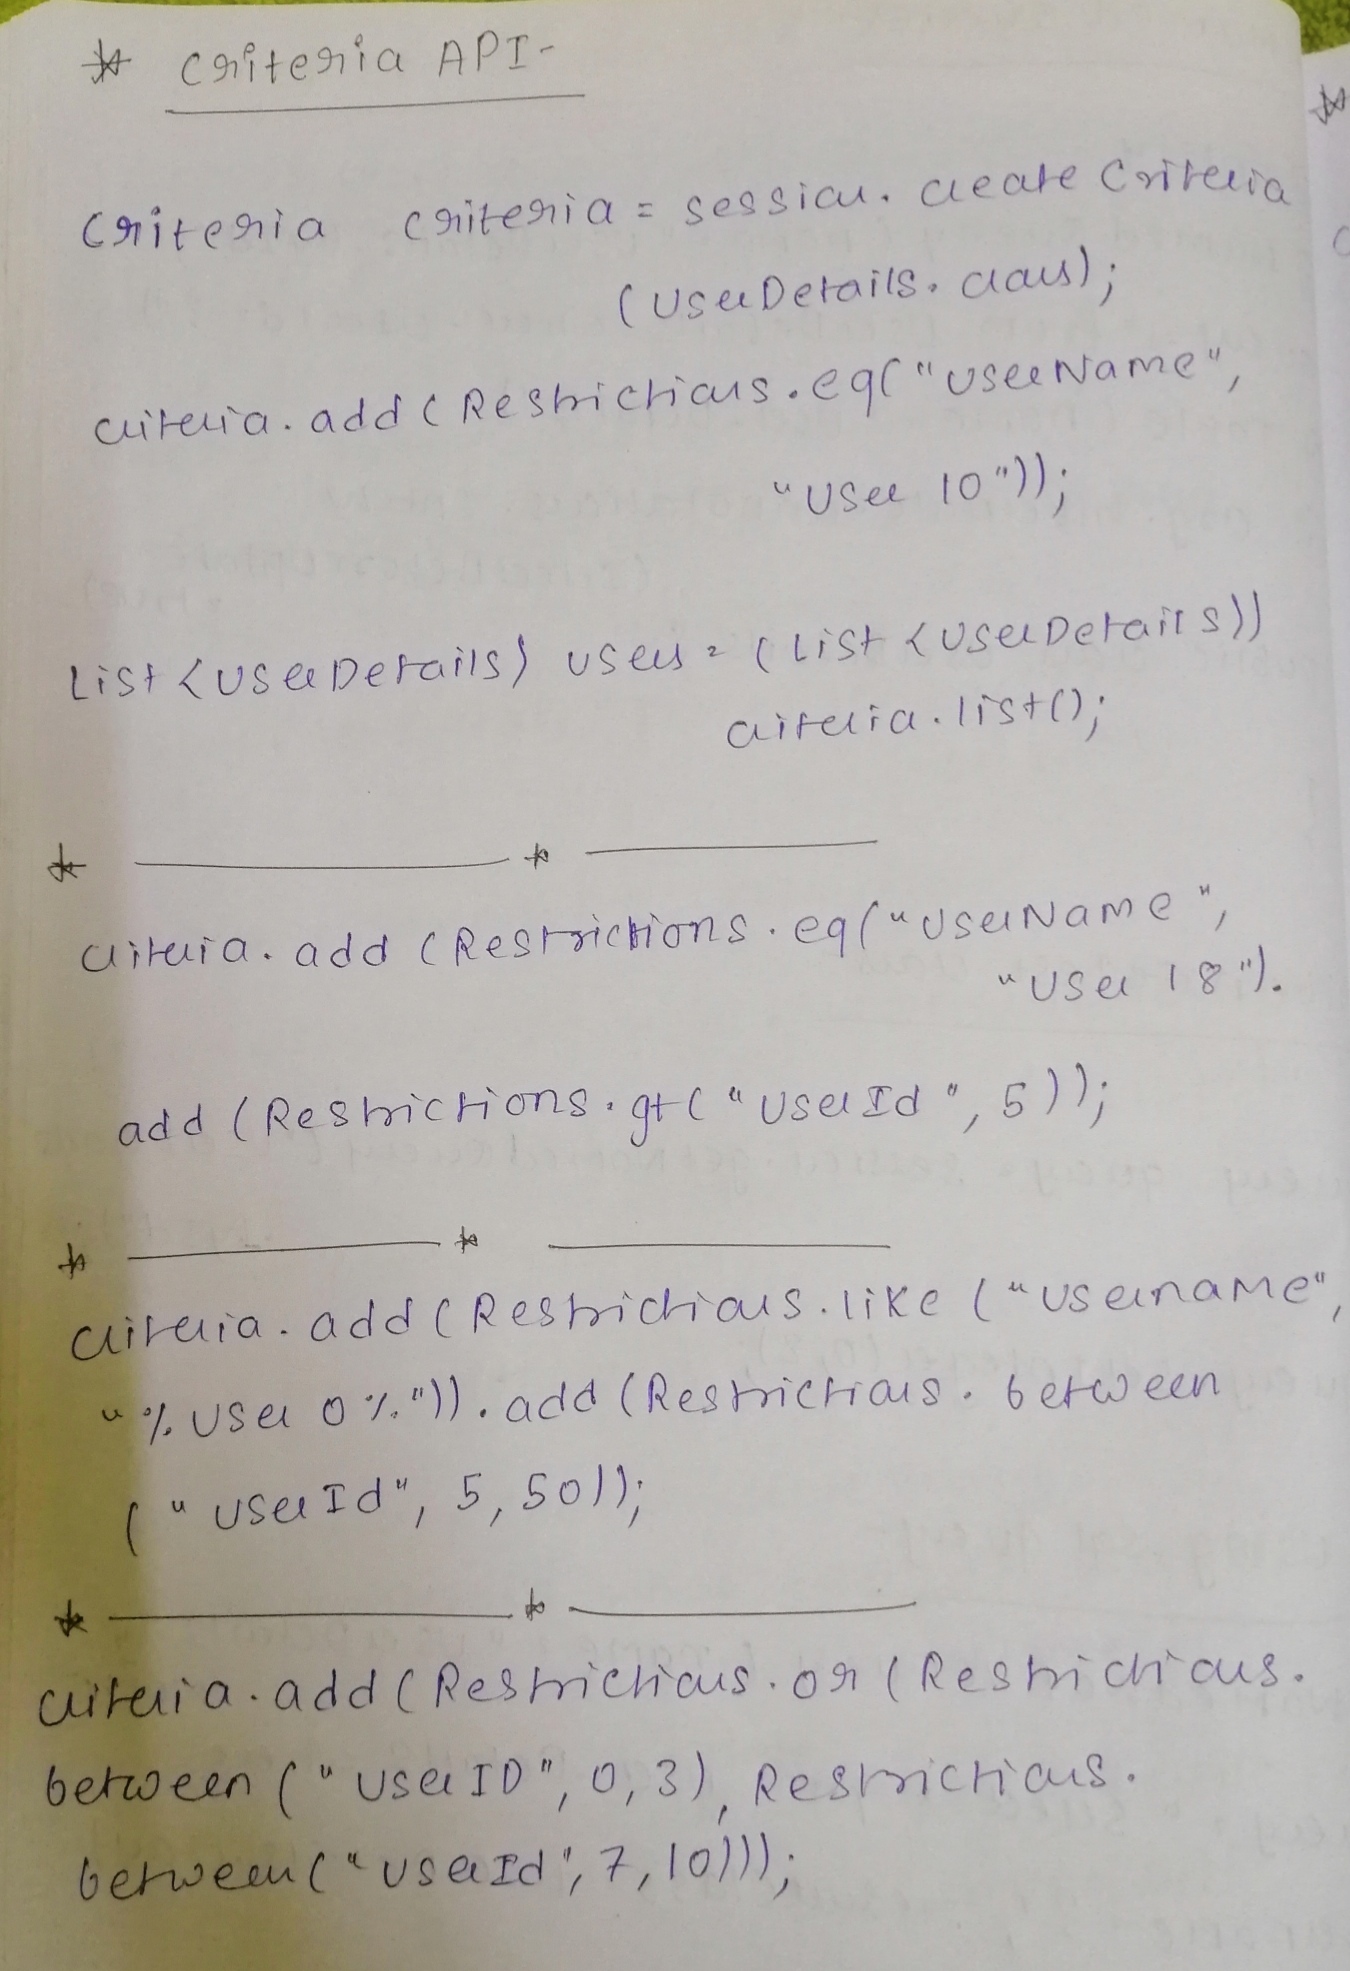 * Criteria API-
Criteria criteria = session. create Criteria
(UserDetails. class);
criteria. add (Restrictions.eq("UserName",
"User 10"));
List <UserDetails> users = (List <UserDetails>)
criteria. list();
* *
criteria. add (Restrictions. eq("UserName",
"User 18").
add (Restrictions. gt("UserId", 5));
* *
criteria. add (Restrictions. like ("Username",
"% User 0 %")). add (Restrictions. between
("UserId", 5, 50));
* *
criteria. add (Restrictions. or (Restrictions.
between ("UserID", 0, 3), Restrictions.
between("UserId", 7, 10)));